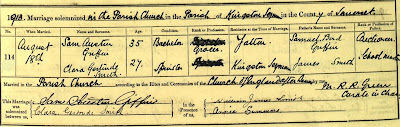 1913. Marriage solemnized in the Parish Church in the Parish of Kingston Seymour in the County of Somerset
When Married. Name and Surname. Age. Condition. Rank or Profession. Residence at the time of Marriage. Father's Name and Surname. Rank or Profession of Father.
August 18th Sam Preston Griffin 35 Bachelor Grocer Yatton Samuel Bond Griffin Gardener
118
Clara Gertrude Smith 27. Spinster Kingston Seymour James Smith Schoolmaster
Married in the Parish Church according to the Rites and Ceremonies of the Church of England after by me,
This Marriage was solemnized between us, Griffin Clara Gertrude Smith in the Presence of us, William James Annie M. R. R. Green Curate in Charge